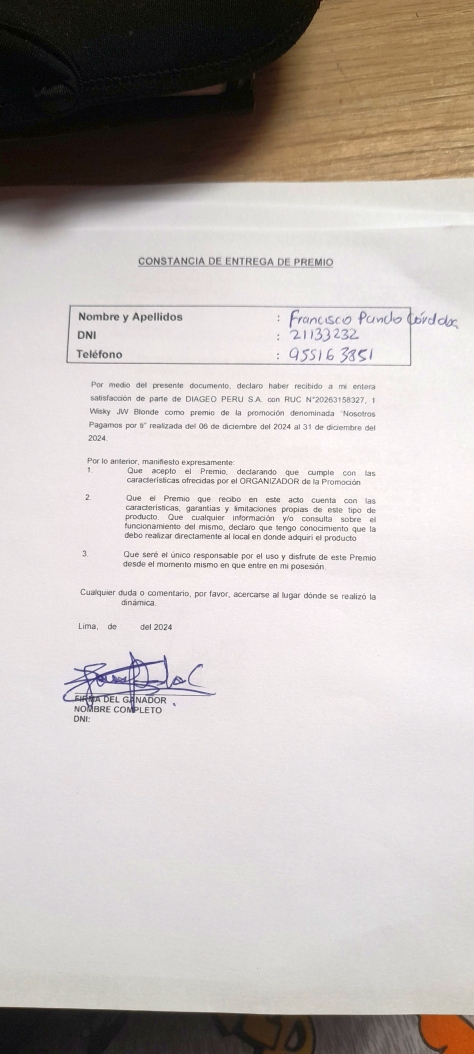 CONSTANCIA DE ENTREGA DE PREMIO
Nombre y Apellidos : Francisco Pando Córdova
DNI : 21133232
Teléfono : 955163851
Por medio del presente documento, declaro haber recibido a mi entera
satisfacción de parte de DIAGEO PERU S.A. con RUC N°20263158327, 1
Wisky JW Blonde como premio de la promoción denominada "Nosotros
Pagamos por ti" realizada del 06 de diciembre del 2024 al 31 de diciembre del
2024.
Por lo anterior, manifiesto expresamente:
1. Que acepto el Premio, declarando que cumple con las
características ofrecidas por el ORGANIZADOR de la Promoción
2. Que el Premio que recibo en este acto cuenta con las
características, garantías y limitaciones propias de este tipo de
producto. Que cualquier información y/o consulta sobre el
funcionamiento del mismo, declaro que tengo conocimiento que la
debo realizar directamente al local en donde adquirí el producto
3. Que seré el único responsable por el uso y disfrute de este Premio
desde el momento mismo en que entre en mi posesión.
Cualquier duda o comentario, por favor, acercarse al lugar dónde se realizó la
dinámica.
Lima, de del 2024
FIRMA DEL GANADOR
NOMBRE COMPLETO
DNI: